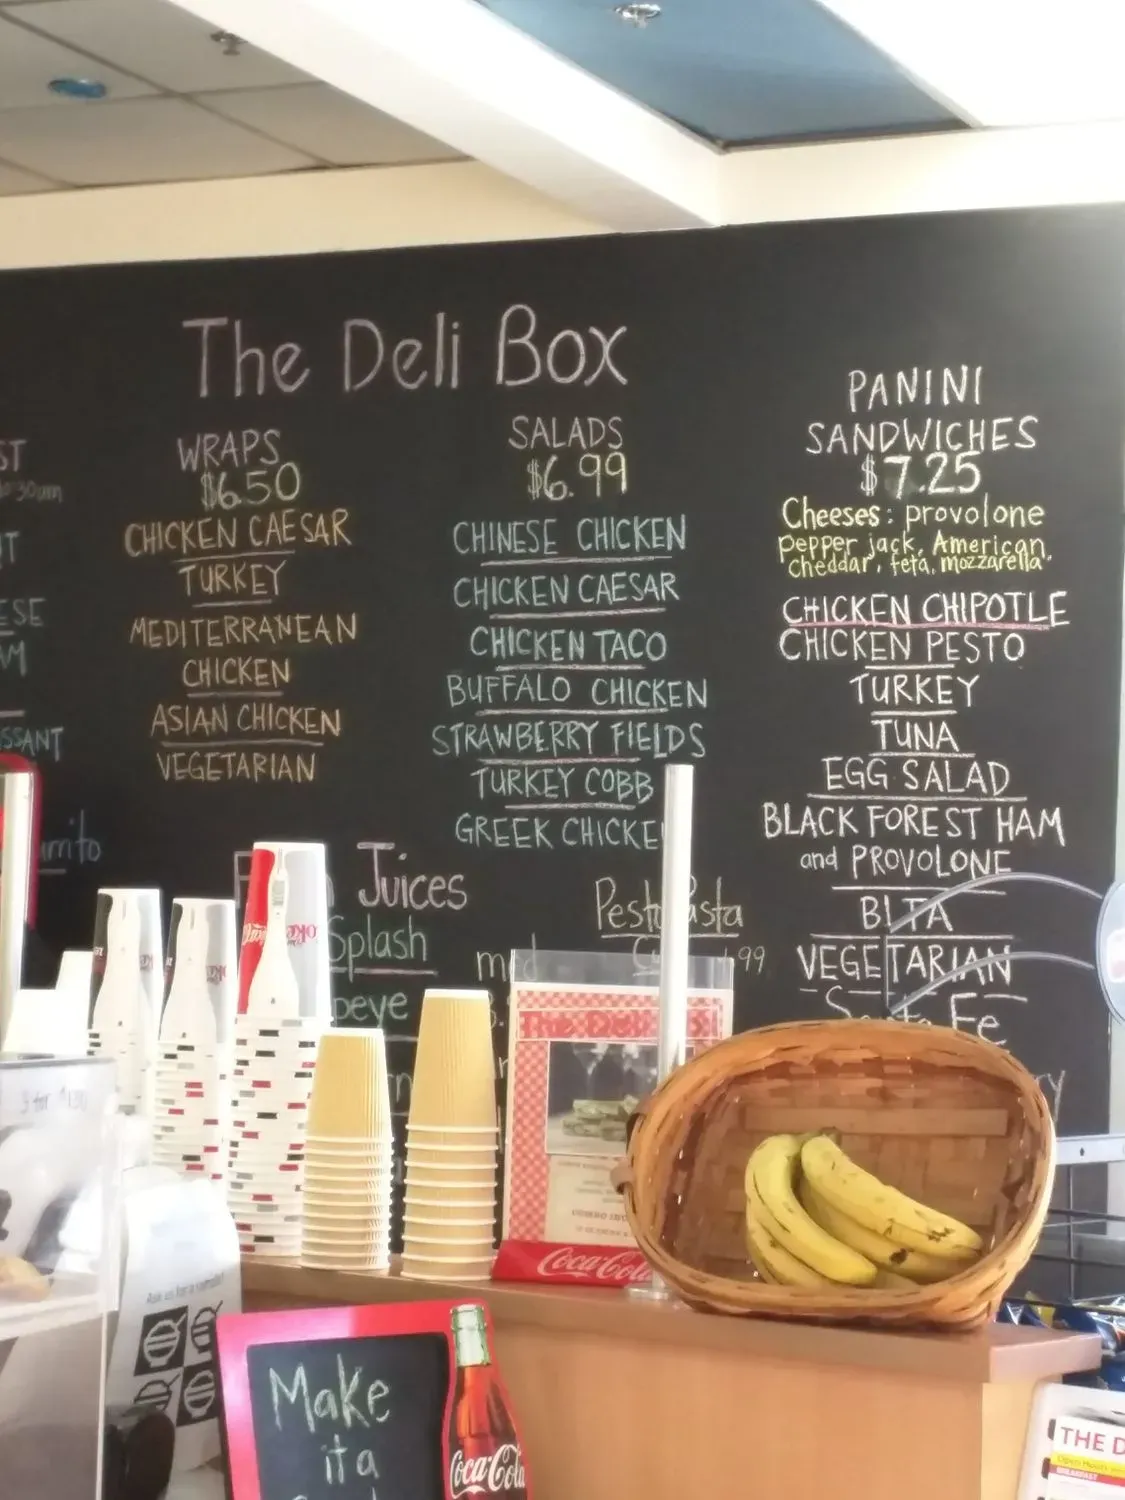 The Deli Box
WRAPS
$6.50
CHICKEN CAESAR
TURKEY
MEDITERRANEAN
CHICKEN
ASIAN CHICKEN
VEGETARIAN
SALADS
$6.99
CHINESE CHICKEN
CHICKEN CAESAR
CHICKEN TACO
BUFFALO CHICKEN
STRAWBERRY FIELDS
TURKEY COBB
GREEK CHICKE
PANINI
SANDWICHES
$7.25
Cheeses: provolone
pepper jack, American,
cheddar, feta, mozzarella
CHICKEN CHIPOTLE
CHICKEN PESTO
TURKEY
TUNA
EGG SALAD
BLACK FOREST HAM
and PROVOLONE
BLTA
VEGETARIAN
Fe
Juices
Splash
peye
Pesto Pasta
99
3 for
Coca-Cola
Ask us for a sample!
Make
it a
Coca-Cola
THE D
Open Hours
BREAKFAST